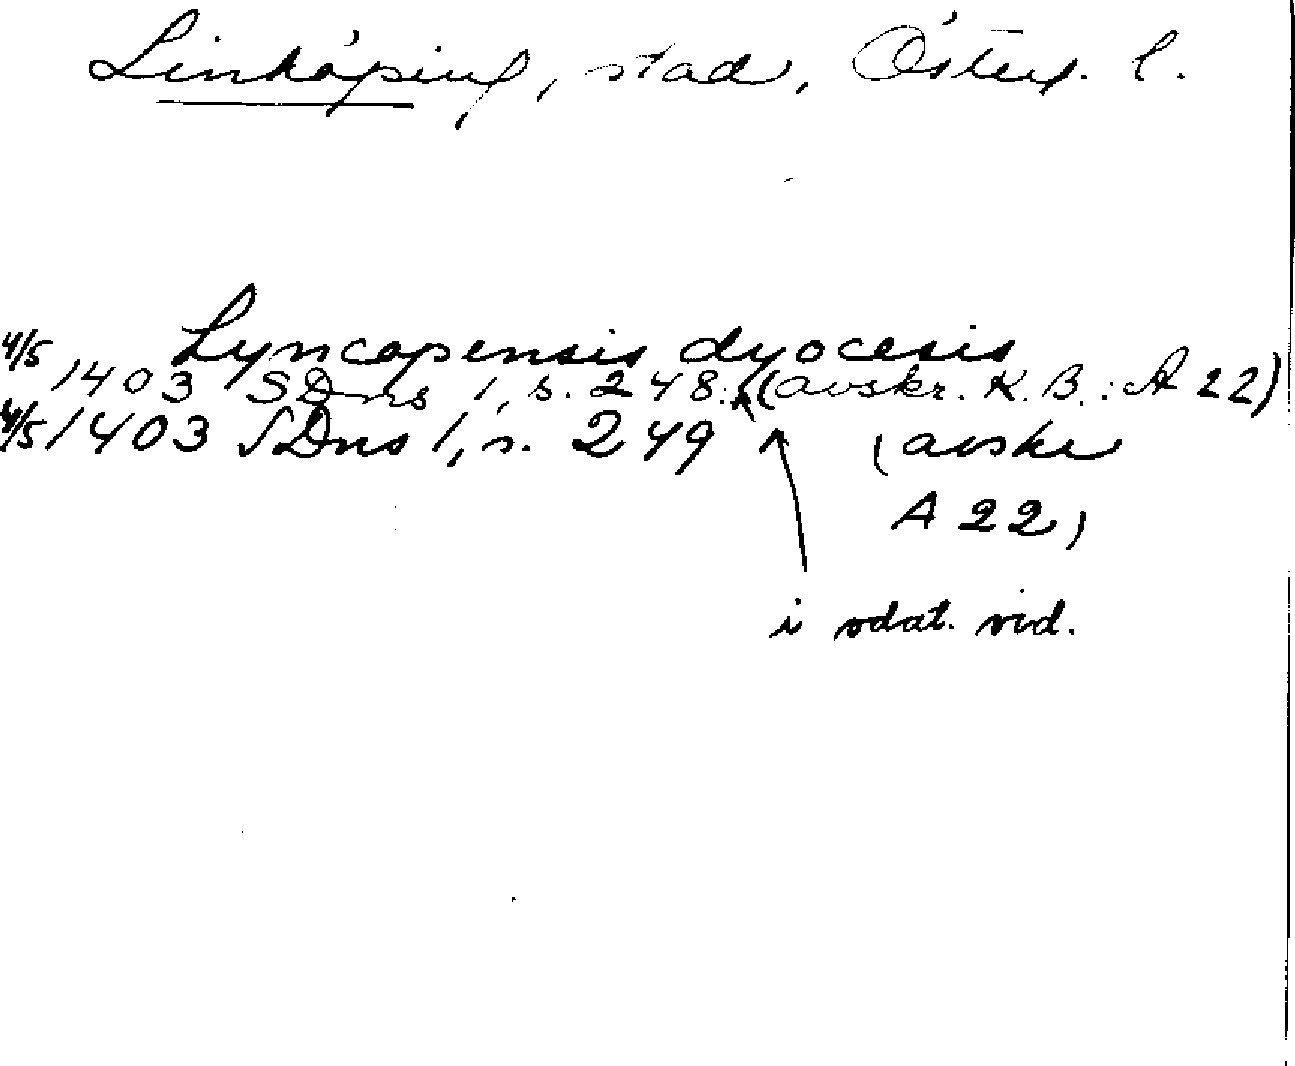 Linköping, stad, Österg. l.
Lyncopensis dyocesis
4/5 1403 SDns 1, s. 248 (avskr. K.B.: A 22)
4/5 1403 SDns 1, s. 249 (avskr
A 22)
i odat. vid.